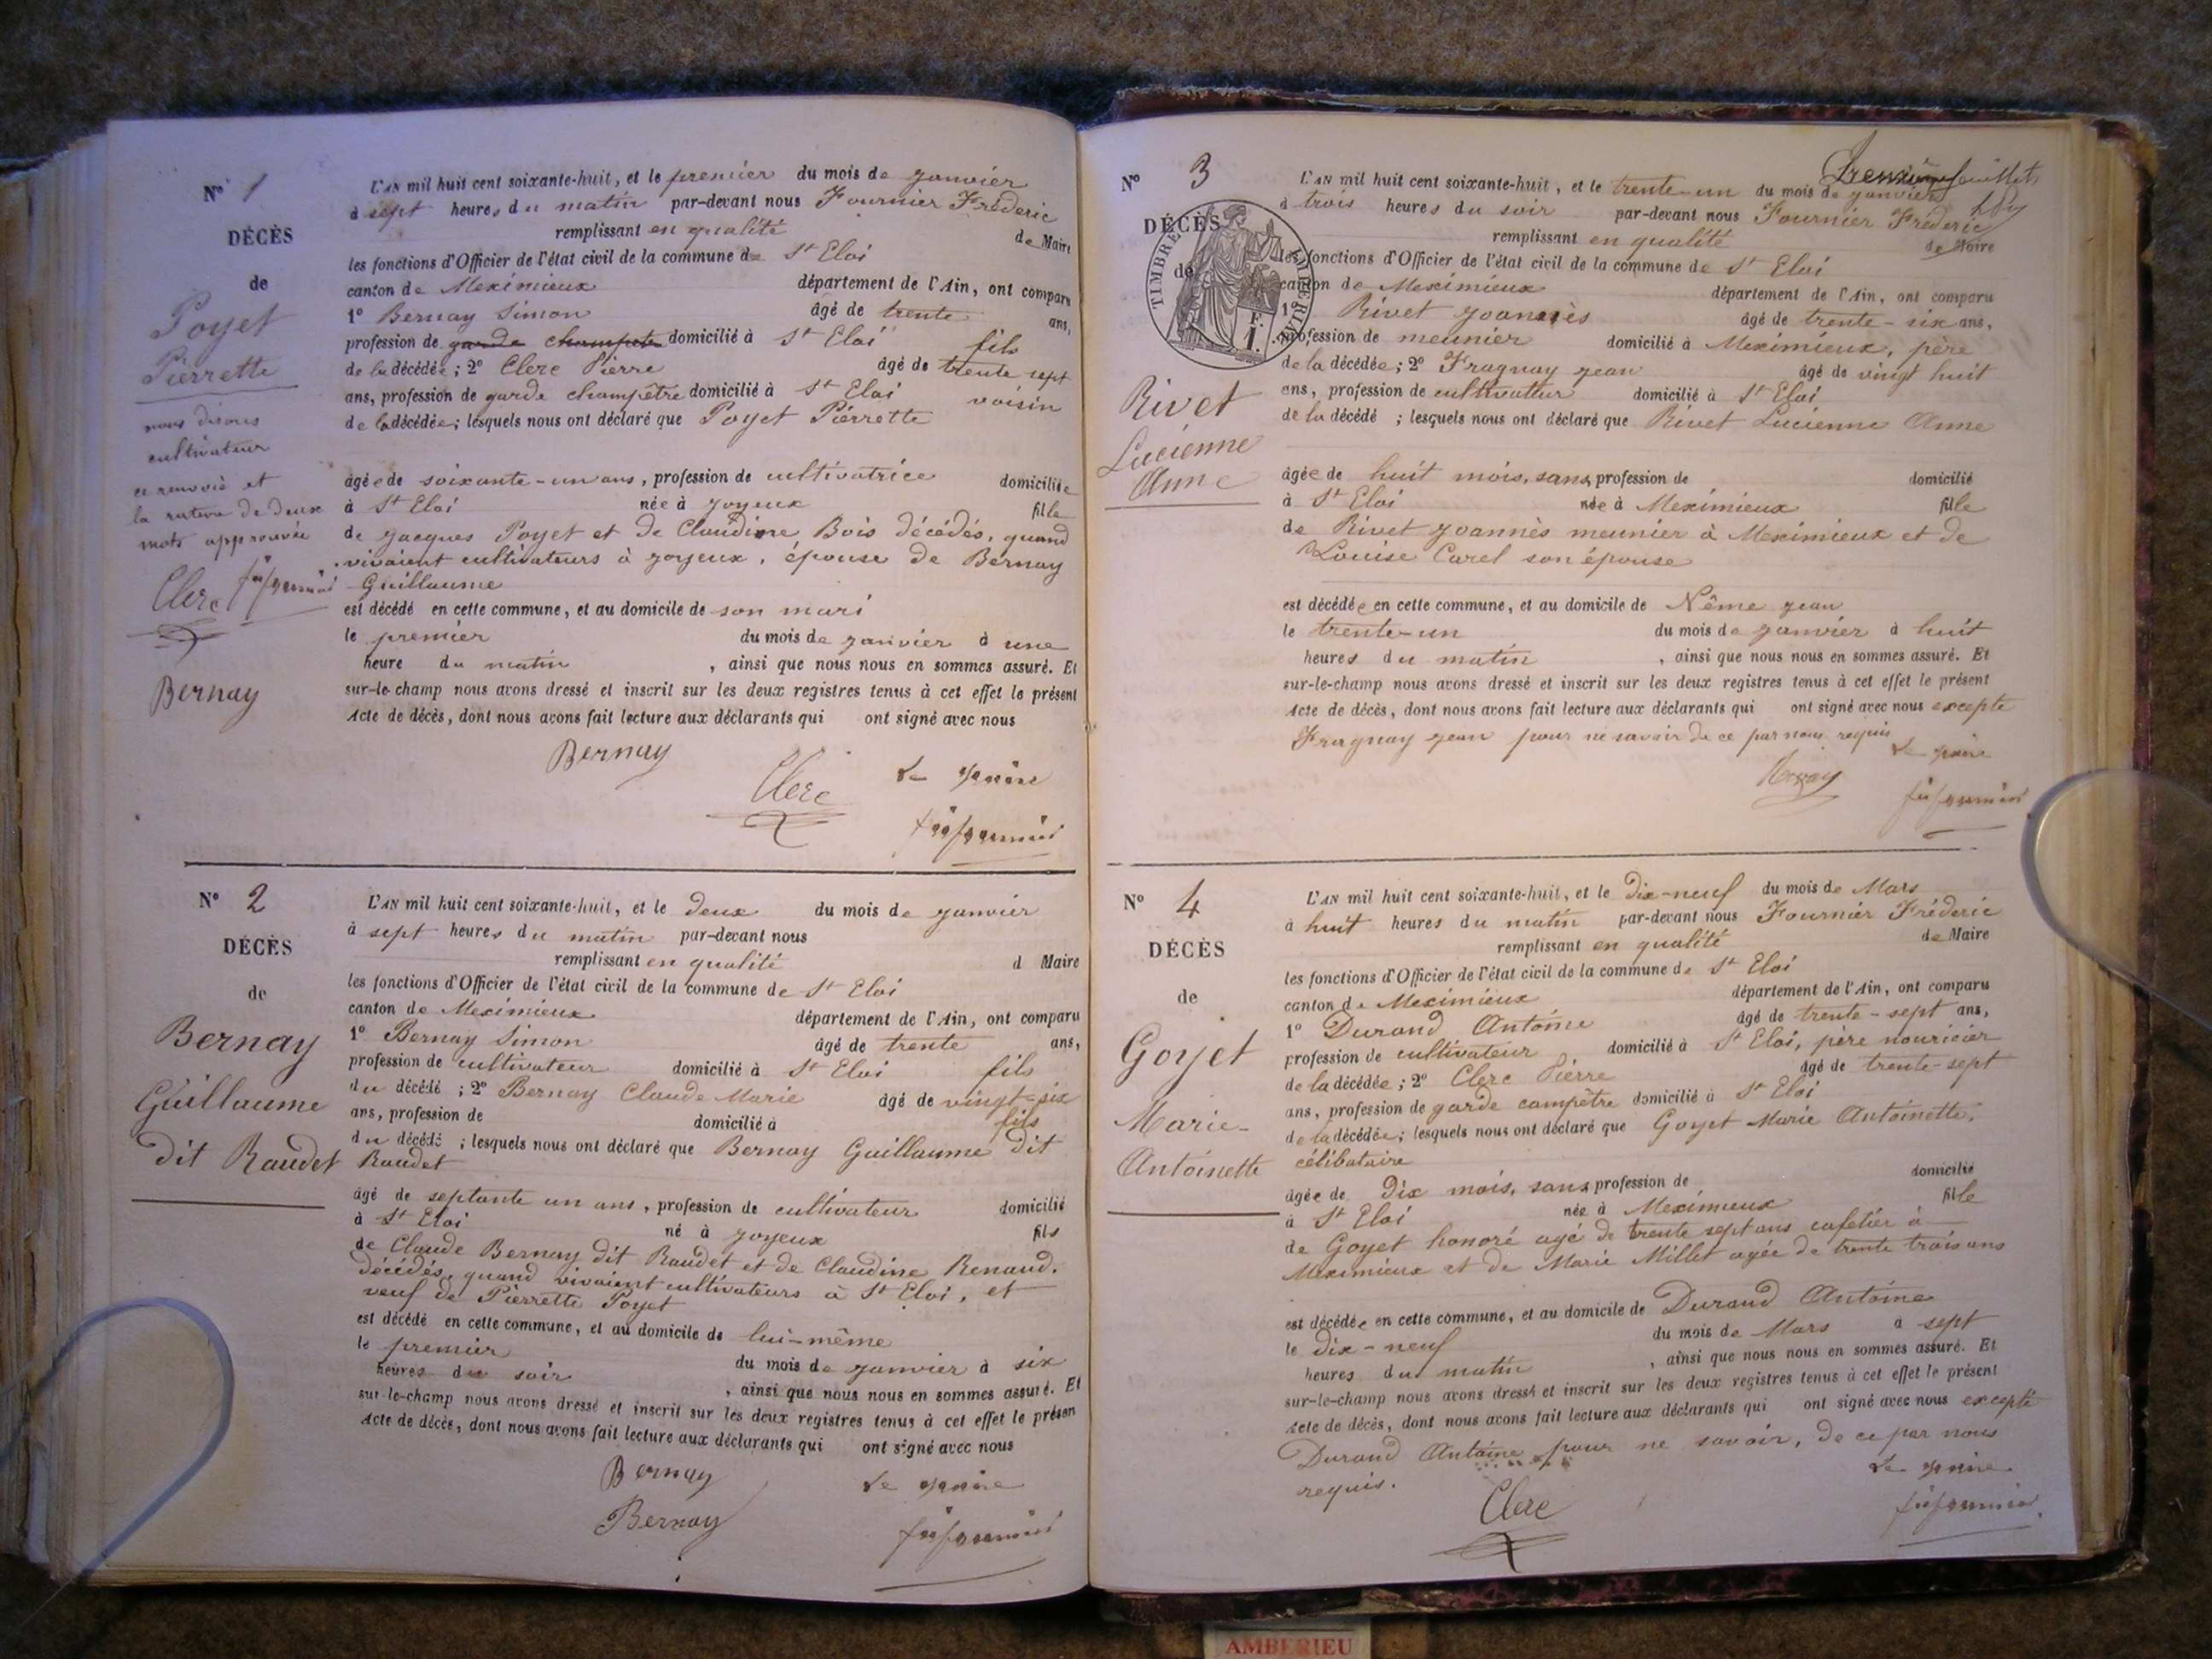 N° 1
DÉCÈS
de
Poyet
Pierrette
nous disons
cultivateur
ce renvoi et
la rature de deux
mots approuvée
Clerc
Bernay
L'AN mil huit cent soixante-huit, et le premier du mois de janvier
à sept heures du matin par-devant nous Fournier Fréderic
remplissant en qualité de Maire
les fonctions d'Officier de l'état civil de la commune de St Eloi
canton de Meximieux département de l'Ain, ont comparu
1° Bernay Simon âgé de trente ans,
profession de garde champetre domicilié à St Eloi fils
de la décédée; 2° Clerc Pierre âgé de trente sept
ans, profession de garde champêtre domicilié à St Eloi voisin
de la décédée; lesquels nous ont déclaré que Poyet Pierrette
âgée de soixante-un ans, profession de cultivatrice domiciliée
à St Eloi née à Joyeux fille
de Jacques Poyet et de Claudine Bois décédés, quand
vivaient cultivateurs à Joyeux, épouse de Bernay
Guillaume
est décédé en cette commune, et au domicile de son mari
le premier du mois de janvier à une
heure du matin, ainsi que nous nous en sommes assuré. Et
sur-le-champ nous avons dressé et inscrit sur les deux registres tenus à cet effet le présent
Acte de décès, dont nous avons fait lecture aux déclarants qui ont signé avec nous
Bernay
Clerc
Le maire
N° 2
DÉCÈS
de
Bernay
Guillaume
dit Raudet
L'AN mil huit cent soixante-huit, et le deux du mois de janvier
à sept heures du matin par-devant nous
remplissant en qualité d Maire
les fonctions d'Officier de l'état civil de la commune de St Eloi
canton de Meximieux département de l'Ain, ont comparu
1° Bernay Simon âgé de trente ans,
profession de cultivateur domicilié à St Eloi fils
du décédé; 2° Bernay Claude Marie âgé de vingt-six
ans, profession de domicilié à fils
du décédé; lesquels nous ont déclaré que Bernay Guillaume dit
Raudet
âgé de septante un ans, profession de cultivateur domicilié
à St Eloi né à Joyeux fils
de Claude Bernay dit Raudet et de Claudine Renaud.
décédés, quand vivaient cultivateurs à St Eloi, et
veuf de Pierrette Poyet
est décédé en cette commune, et au domicile de lui-même
le premier du mois de janvier à six
heures du soir, ainsi que nous nous en sommes assuré. Et
sur-le-champ nous avons dressé et inscrit sur les deux registres tenus à cet effet le présen
Acte de décès, dont nous avons fait lecture aux déclarants qui ont signé avec nous
Bernay
Le maire
Bernay
N° 3
DÉCÈS
de
TIMBRE IMPÉRIAL
1 F.
Rivet
Lucienne
Anne
feuillet
L'AN mil huit cent soixante-huit, et le trente-un du mois de janvier
à trois heures du soir par-devant nous Fournier Fréderic
remplissant en qualité de Maire
les fonctions d'Officier de l'état civil de la commune de St Eloi
canton de Meximieux département de l'Ain, ont comparu
1° Rivet Joannès âgé de trente-six ans,
profession de meunier domicilié à Meximieux, père
de la décédée; 2° Fragnay Jean âgé de vingt huit
ans, profession de cultivateur domicilié à St Eloi
de la décédé; lesquels nous ont déclaré que Rivet Lucienne Anne
âgée de huit mois, sans profession de domicilié
à St Eloi née à Meximieux fille
de Rivet Joannès meunier à Meximieux et de
Louise Carel son épouse
est décédée en cette commune, et au domicile de Nême Jean
le trente-un du mois de janvier à huit
heures du matin, ainsi que nous nous en sommes assuré. Et
sur-le-champ nous avons dressé et inscrit sur les deux registres tenus à cet effet le présent
Acte de décès, dont nous avons fait lecture aux déclarants qui ont signé avec nous excepté
Fragnay Jean pour ne savoir de ce par nous requis
Le maire
N° 4
DÉCÈS
de
Goyet
Marie-
Antoinette
L'AN mil huit cent soixante-huit, et le Dix-neuf du mois de Mars
à huit heures du matin par-devant nous Fournier Fréderic
remplissant en qualité de Maire
les fonctions d'Officier de l'état civil de la commune de St Eloi
canton de Meximieux département de l'Ain, ont comparu
1° Durand Antoine âgé de trente-sept ans,
profession de cultivateur, domicilié à St Eloi, père nouricier
de la décédée; 2° Clerc Pierre âgé de trente-sept
ans, profession de garde campêtre domicilié à St Eloi
de la décédée; lesquels nous ont déclaré que Goyet Marie Antoinette,
célibataire
âgée de Dix mois, sans profession de domicilié
à St Eloi née à Meximieux fille
de Goyet honoré agé de trente sept ans cafetier à
Meximieux et de Marie Millet agée de trente trois ans
est décédée en cette commune, et au domicile de Durand Antoine
le Dix-neuf du mois de Mars à sept
heures du matin, ainsi que nous nous en sommes assuré. Et
sur-le-champ nous avons dressé et inscrit sur les deux registres tenus à cet effet le présent
Acte de décès, dont nous avons fait lecture aux déclarants qui ont signé avec nous excepté
Durand Antoine pour ne savoir, de ce par nous
requis.
Le maire
Clerc
AMBERIEU